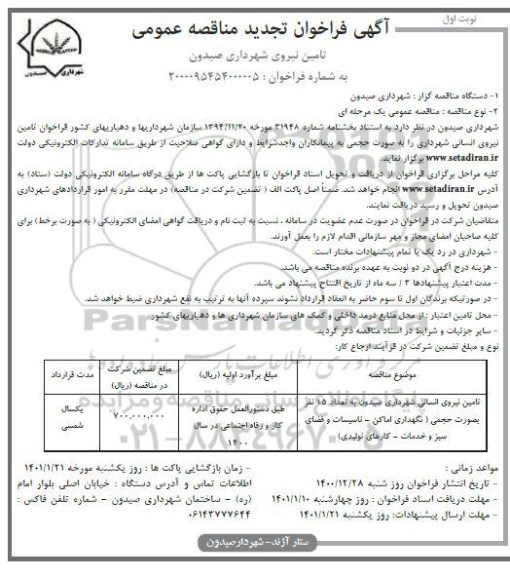 نوبت اول
آگهی فراخوان تجدید مناقصه عمومی
تامین نیروی شهرداری صیدون
به شماره فراخوان : ۲۰۰۰۰۹۵۴۵۴۰۰۰۰۰۵
شهرداری صیدون
۱- دستگاه مناقصه گزار : شهرداری صیدون
۲- نوع مناقصه : مناقصه عمومی یک مرحله ای
شهرداری صیدون در نظر دارد به استناد بخشنامه شماره ۳۱۹۴۸ مورخه ۱۳۹۴/۱۱/۲۰ سازمان شهرداریها و دهیاریهای کشور فراخوان تامین
نیروی انسانی شهرداری را به صورت حجمی به پیمانکاران واجدشرایط و دارای گواهی صلاحیت از طریق سامانه تدارکات الکترونیکی دولت
www.setadiran.ir برگزار نماید.
کلیه مراحل برگزاری فراخوان از دریافت و تحویل اسناد فراخوان تا بازگشایی پاکت ها از طریق درگاه سامانه الکترونیکی دولت (ستاد) به
آدرس www.setadiran.ir انجام خواهد شد. ضمناً اصل پاکت الف ( تضمین شرکت در مناقصه) در مهلت مقرر به امور قراردادهای شهرداری
صیدون تحویل و رسید دریافت نمایند.
متقاضیان شرکت در فراخوان در صورت عدم عضویت در سامانه ، نسبت به ثبت نام و دریافت گواهی امضای الکترونیکی ( به صورت برخط) برای
کلیه صاحبان امضای مجاز و مهر سازمانی اقدام لازم را بعمل آورند.
- شهرداری در رد یک یا تمام پیشنهادات مختار است.
- هزینه درج آگهی در دو نوبت به عهده برنده مناقصه می باشد.
- مدت اعتبار پیشنهادها ۳ / سه ماه از تاریخ افتتاح پیشنهاد می باشد.
- در صورتیکه برندگان اول تا سوم حاضر به انعقاد قرارداد نشوند سپرده آنها به ترتیب به نفع شهرداری ضبط خواهد شد.
- محل تامین اعتبار : از محل منابع درمد داخلی و کمک های سازمان شهرداری ها و دهیاریهای کشور
- سایر جزئیات و شرایط در اسناد مناقصه ذکر گردید.
نوع و مبلغ تضمین شرکت در فرآیند ارجاع کار:
موضوع مناقصه
مبلغ برآورد اولیه (ریالی)
مبلغ تضمین شرکت
در مناقصه (ریال)
مدت قرارداد
تامین نیروی انسانی شهرداری صیدون به تعداد ۱۵ نفر
بصورت حجمی ( نگهداری اماکن - تاسیسات و فضای
سبز و خدمات - کارهای تولیدی)
طبق دستورالعمل حقوق اداره
کار و رفاه اجتماعی در سال
۱۴۰۰
۷۰۰,۰۰۰,۰۰۰
یکسال
شمسی
مواعد زمانی :
- تاریخ انتشار فراخوان روز شنبه ۱۴۰۰/۱۲/۲۸
- مهلت دریافت اسناد فراخوان : روز چهارشنبه ۱۴۰۱/۱/۱۰
- مهلت ارسال پیشنهادات: روز یکشنبه ۱۴۰۱/۱/۲۱
- زمان بازگشایی پاکت ها : روز یکشنبه مورخه ۱۴۰۱/۱/۲۱
اطلاعات تماس و آدرس دستگاه : خیابان اصلی بلوار امام
(ره) - ساختمان شهرداری صیدون - شماره تلفن فاکس :
۰۶۱۴۳۷۷۷۶۴۴
ستار آژند- شهردارصیدون
۰۲۱-۸۸۳۴۹۶۷۰